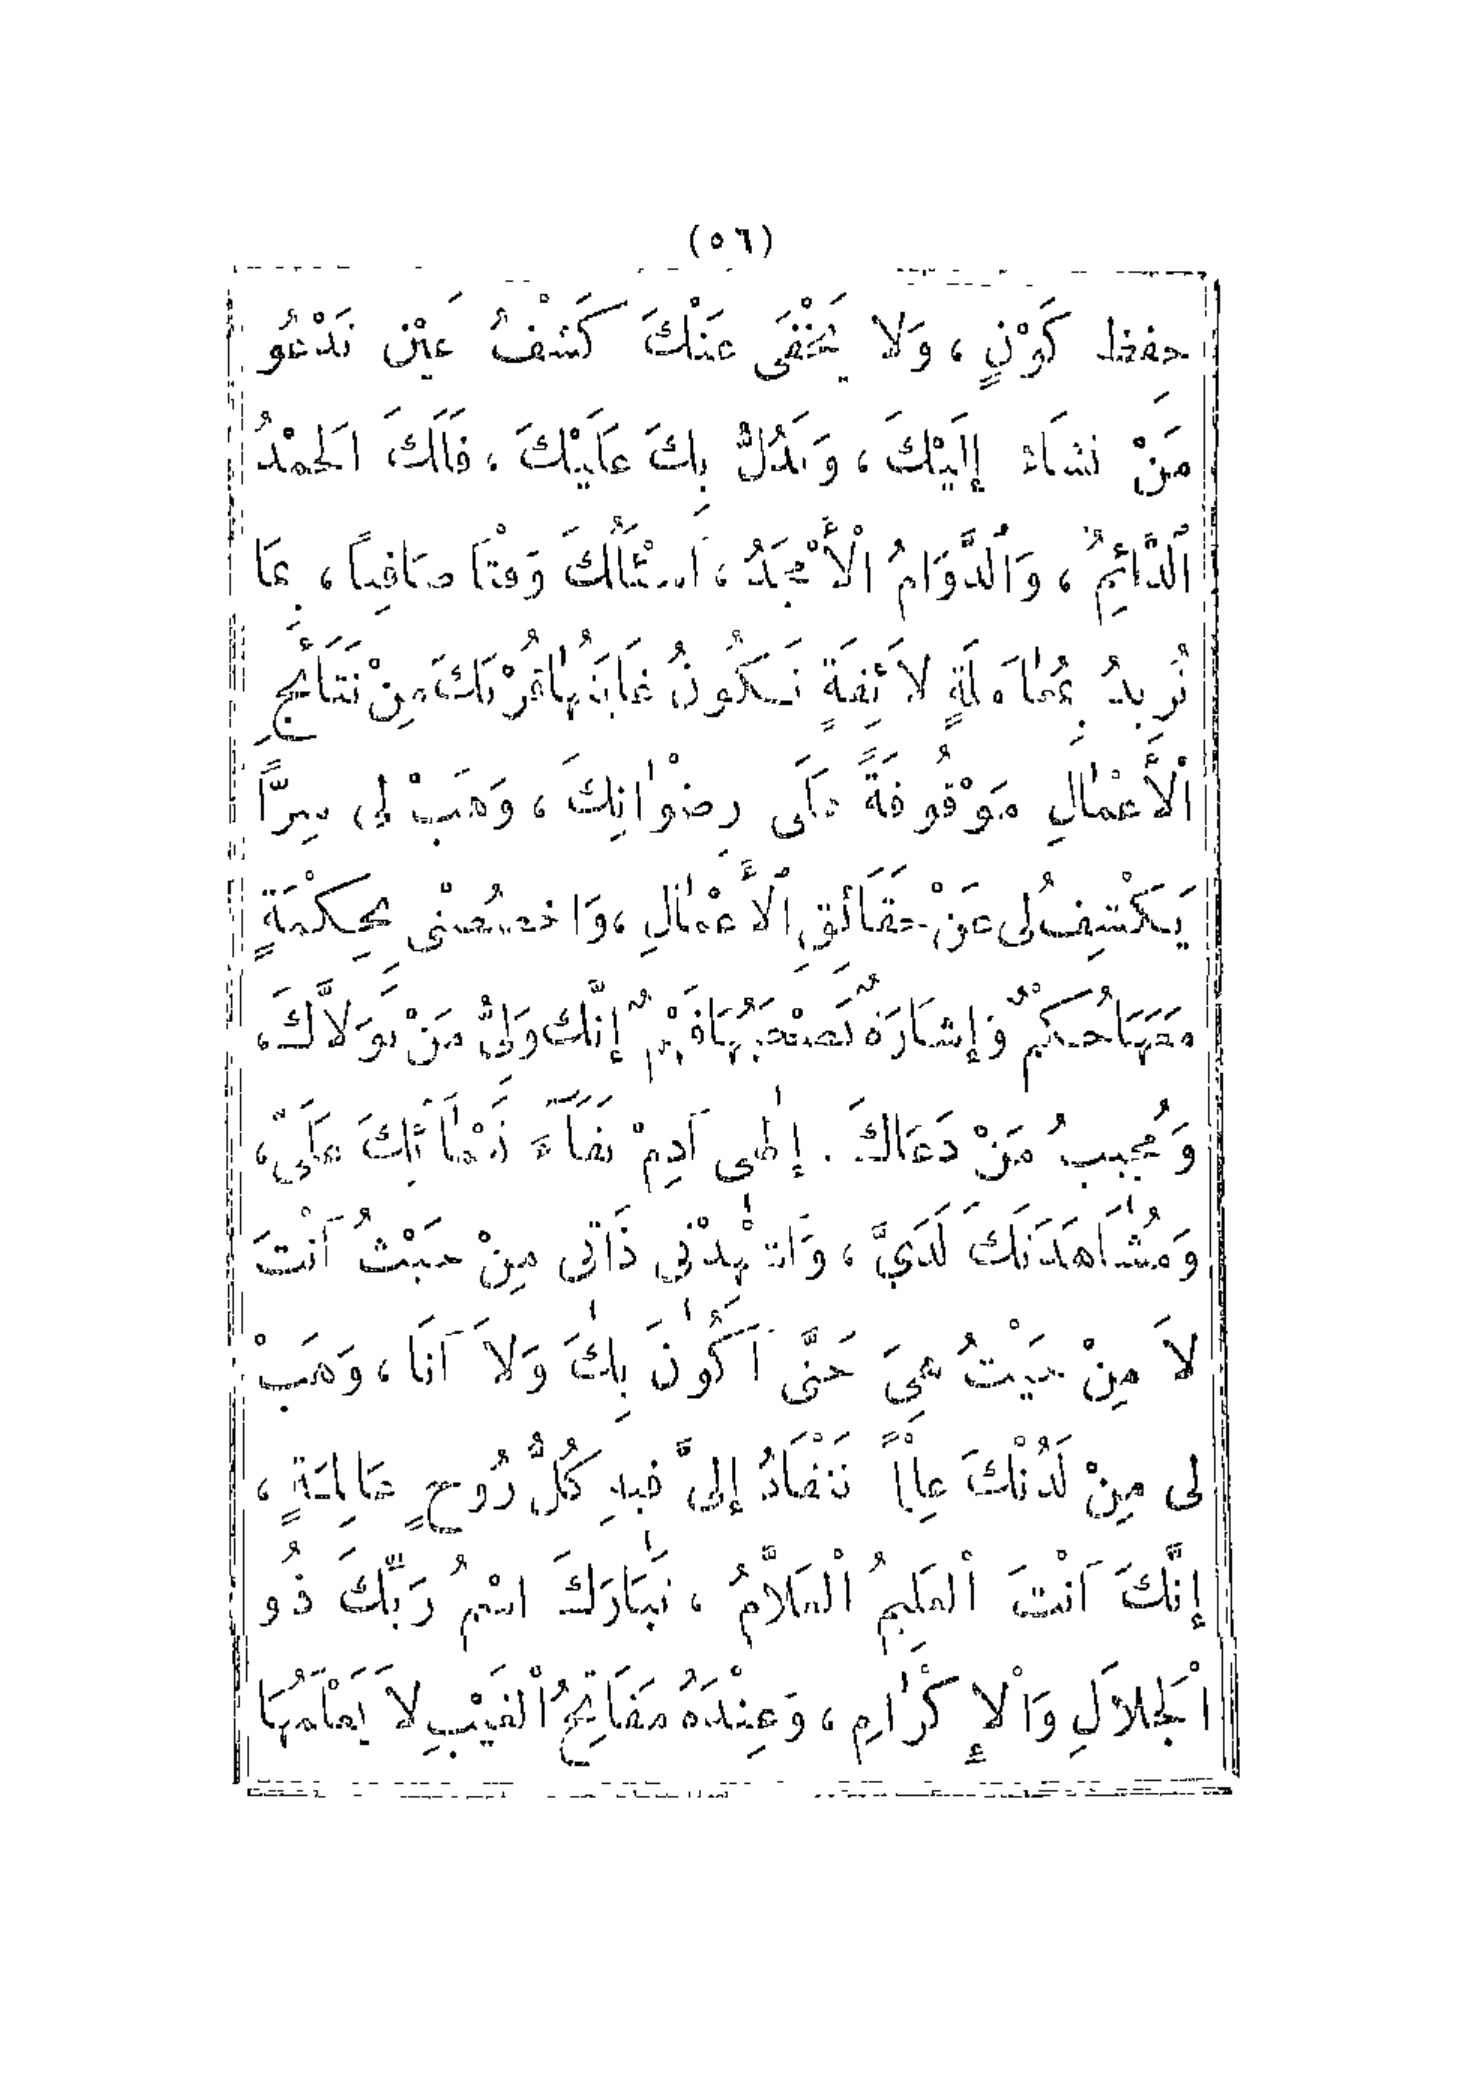 (٥٦)
حِفِظ كَوْنٍ ، وَلا يَخْفَى عَنْكَ كَشْفُ عَيْنٍ نَدْعُو
مَنْ نشَاء إِلَيْكَ ، وَنَدُلُّ بِكَ عَلَيْكَ ، فَلَكَ الحَمْدُ
ٱلدَّائِمُ ، وَٱلدَّوَامُ الْأَمْجَدُ ، اَسْئَلُكَ وَقْتاً صَافِياً ، بِمَا
نُرِيدُ بِمُعَامَلَةٍ لاَئِقَةٍ تَكُونُ غَايَتُهَا قُرْبَكَ مِنْ نَتَائِجِ
اْلأَعْمَالِ مَوْقُوفَةً عَلَى رِضْوَانِكَ ، وَهَبْ لِي سِرًّا
يَكْشِفُ لى عَنْ حَقَائِقِ اْلأَعْمَالِ ، وَاخْصُصْنى بِحِكْمَةٍ
مَعَهَا حُكْمٌ وَإِشَارَةٌ يَصْحَبُهَا فَهْمٌ إِنَّكَ وَلِيُّ مَنْ تَوَلاَّكَ ،
وَمُجِيبُ مَنْ دَعَاكَ . إِلٰهى اَدِمْ بَقَاءَ نَعْمَائِكَ عَلَىَّ ،
وَمُشَاهَدَتَكَ لَدَيَّ ، وَاَشْهِدْنى ذَاتى مِنْ حَيْثُ اَنْتَ
لاَ مِنْ حَيْثُ هِىَ حَتَّى اَكُونَ بِكَ وَلاَ اَنَا ، وَهَبْ
لى مِنْ لَدُنْكَ عِلْماً تَنْقَادُ إِلىَّ فيهِ كُلُّ رُوحٍ عَالِمَةٍ ،
إِنَّكَ اَنْتَ الْعَلِيمُ الْعَلاَّمُ ، تَبَارَكَ اسْمُ رَبِّكَ ذُو
اْلجَلاَلِ وَاْلإِكْرَامِ ، وَعِنْدَهُ مَفَاتِحُ الْغَيْبِ لاَ يَعْلَمُهَا